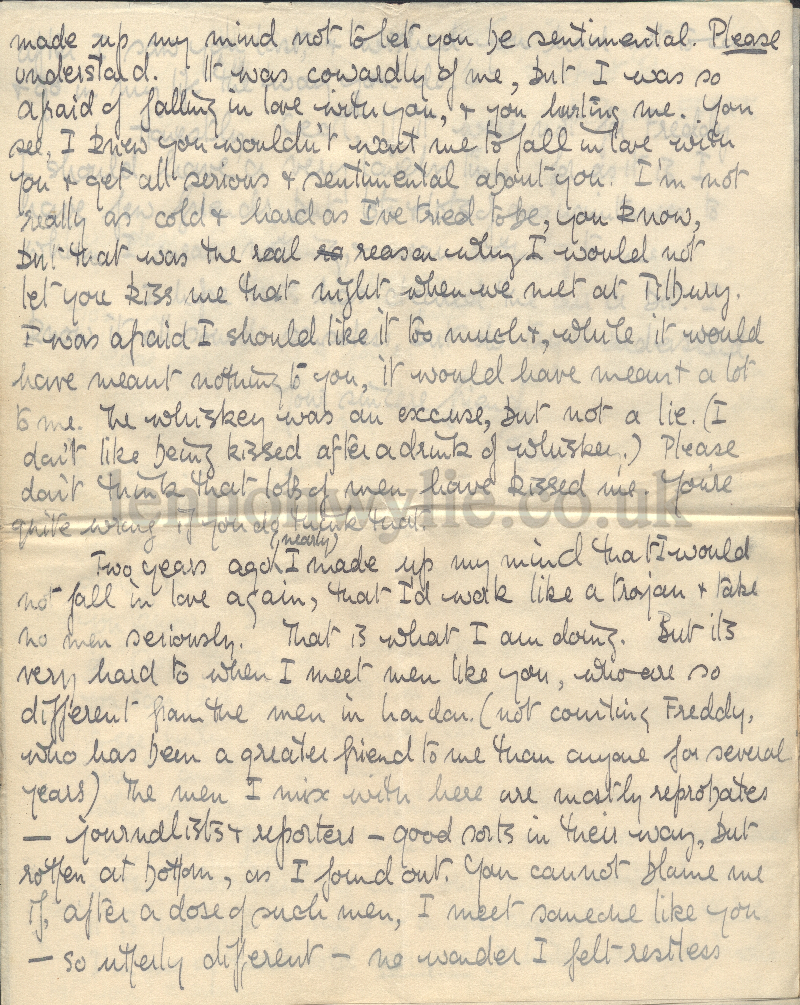 made up my mind not to let you be sentimental. Please
understand. It was cowardly of me, but I was so
afraid of falling in love with you, & you hurting me. You
see, I knew you wouldn't want me to fall in love with
you & get all serious & sentimental about you. I'm not
really as cold & hard as I've tried to be, you know,
but that was the real reason why I would not
let you kiss me that night when we met at Tilbury.
I was afraid I should like it too much &, while it would
have meant nothing to you, it would have meant a lot
to me. The whiskey was an excuse, but not a lie. (I
don't like being kissed after a drink of whiskey.) Please
don't think that lots of men have kissed me. You're
quite wrong if you do think that.
Two years ago (nearly) I made up my mind that I would
not fall in love again, that I'd work like a trojan & take
no men seriously. That is what I am doing. But it's
very hard to when I meet men like you, who are so
different from the men in London. (not counting Freddy,
who has been a greater friend to me than anyone for several
years) The men I mix with here are mostly reprobates
— journalists & reporters — good sorts in their way, but
rotten at bottom, as I found out. You cannot blame me
if, after a dose of such men, I meet someone like you
— so utterly different — no wonder I felt restless
lennonwylie.co.uk